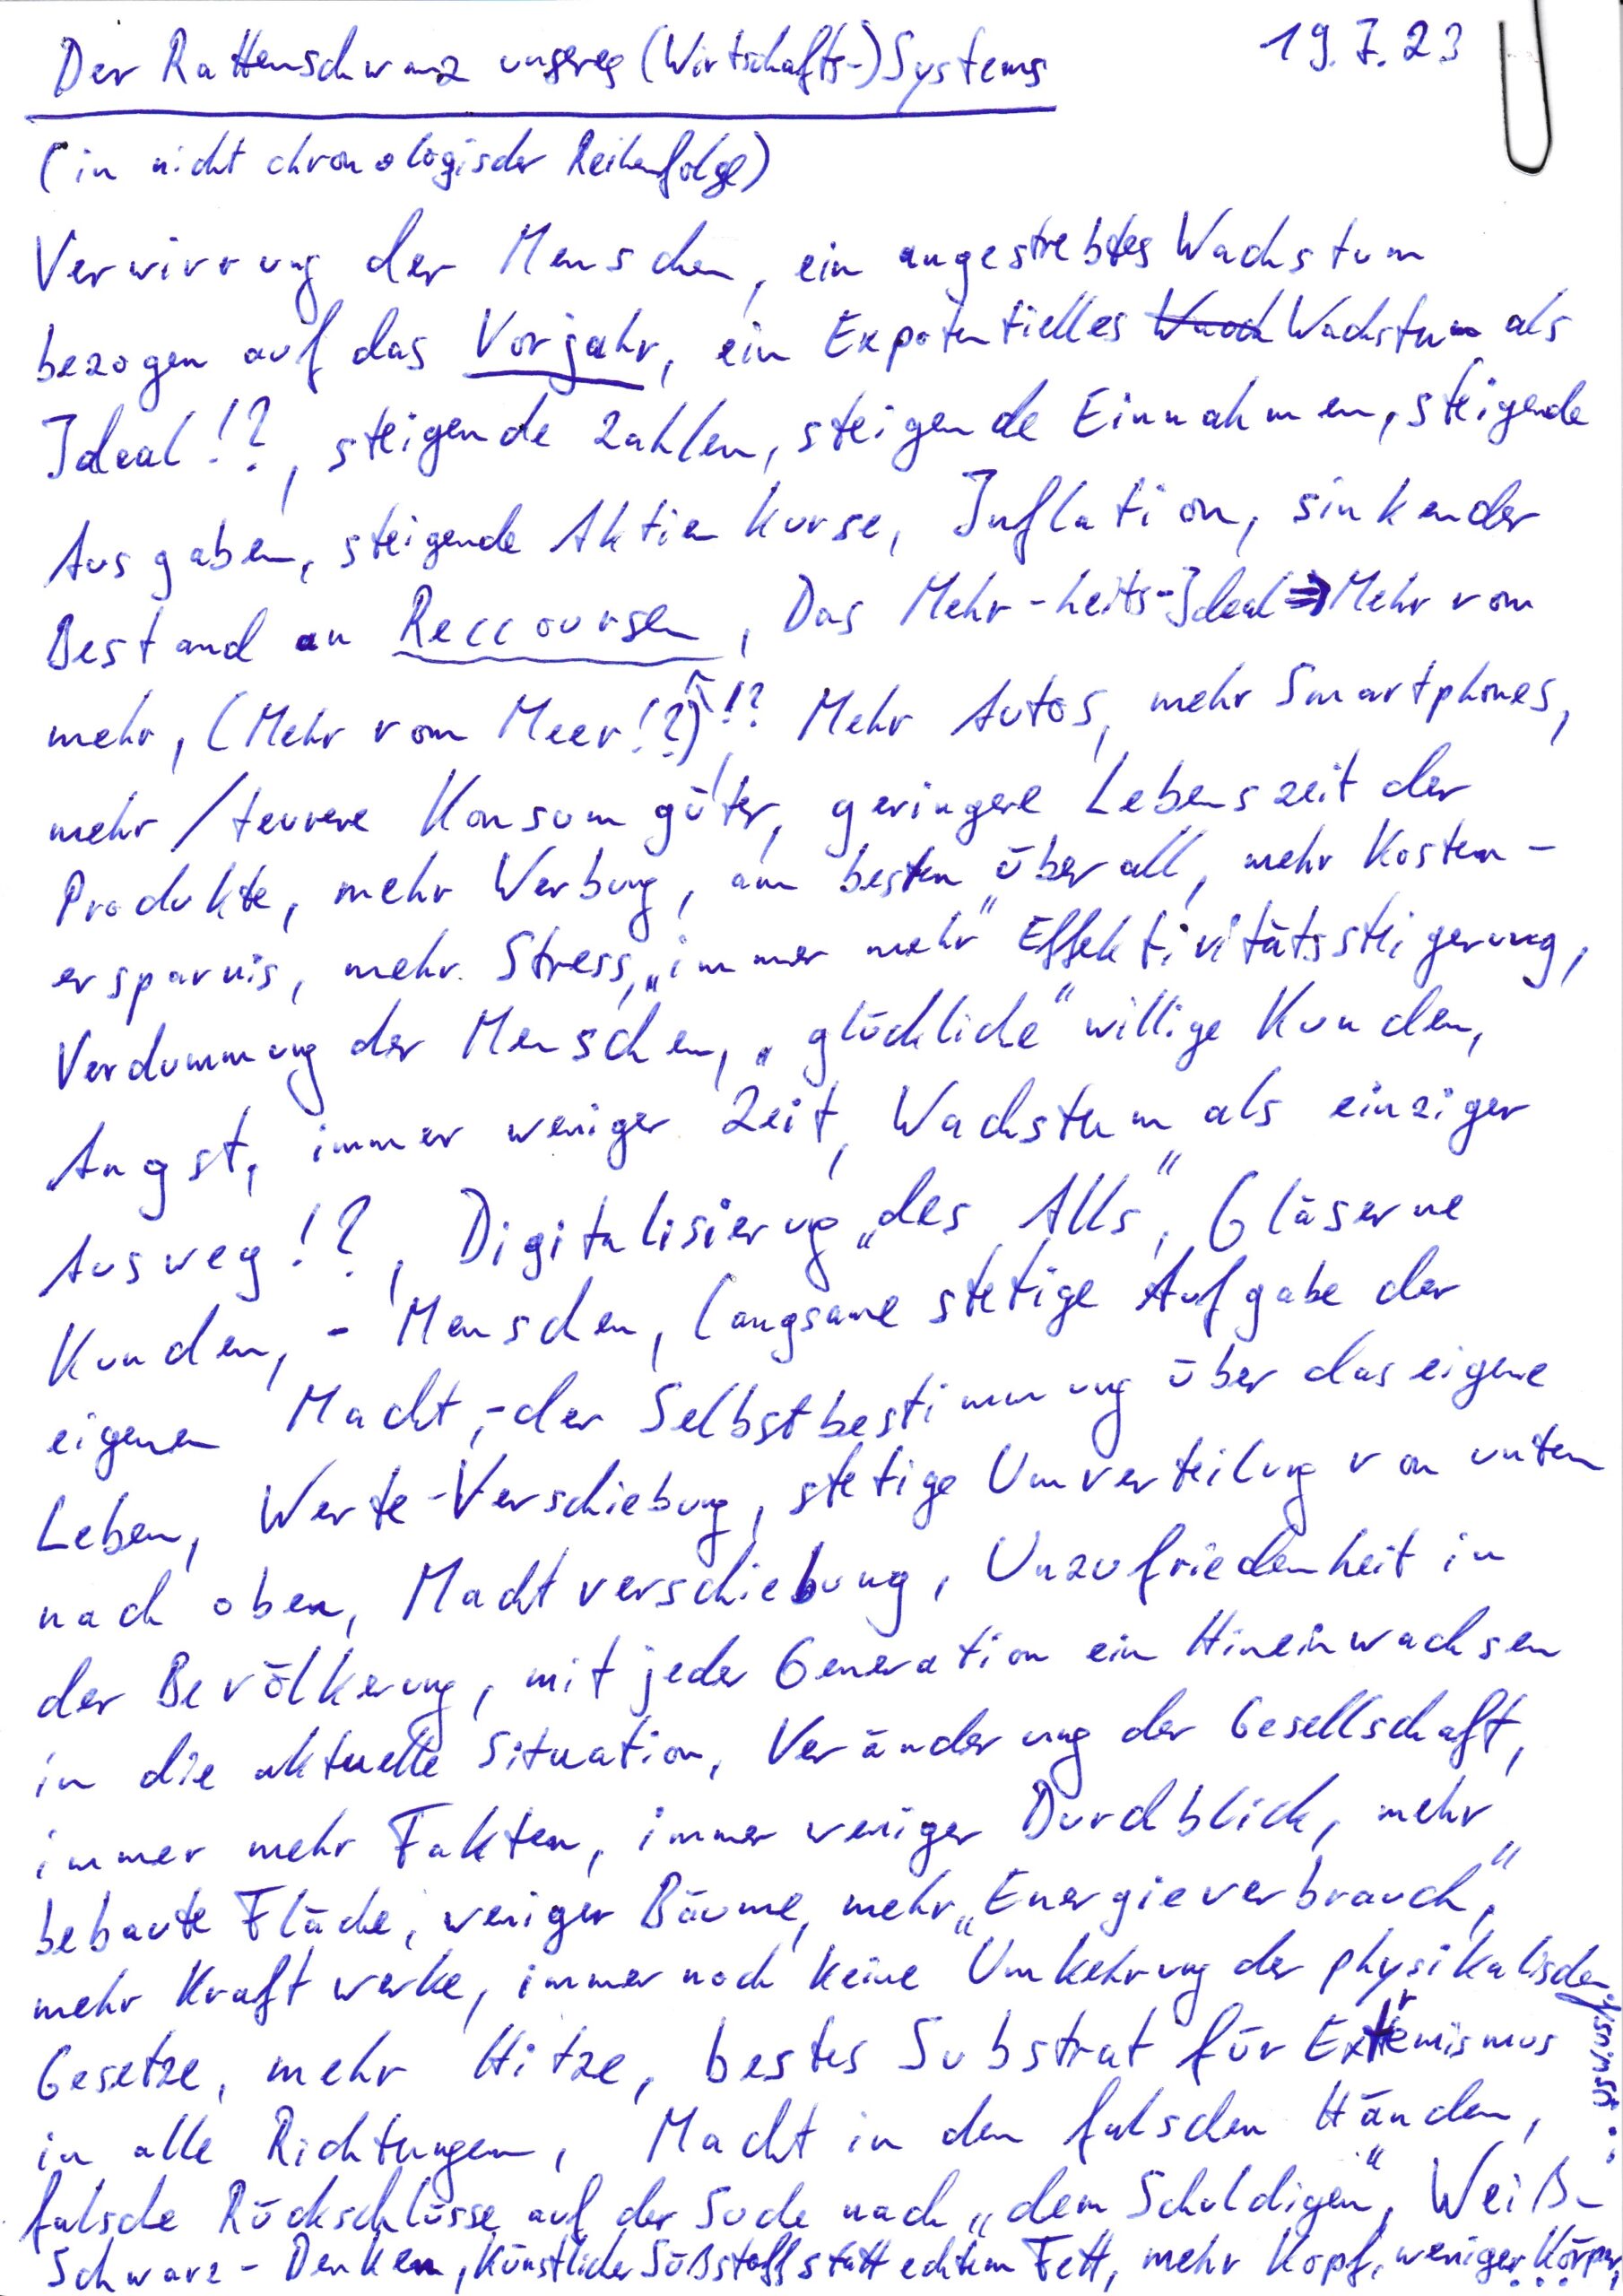 Der Rattenschwanz unseres (Wirtschafts-) Systems 19.7.23
(in nicht chronologischer Reihenfolge)
Verwirrung der Menschen, ein angestrebtes Wachstum
bezogen auf das Vorjahr, ein Expotentielles Wachstum als
Ideal!?, steigende Zahlen, steigende Einnahmen, steigende
Ausgaben, steigende Aktienkurse, Inflation, sinkender
Bestand an Reccoursen, Das Mehr-heits-Ideal ⇒ Mehr vom
mehr, (Mehr vom Meer!?)!? Mehr Autos, mehr Smartphones,
mehr / teurere Konsumgüter, geringere Lebenszeit der
Produkte, mehr Werbung, am besten überall, mehr Kosten-
ersparnis, mehr Stress, „immer mehr" Effektivitätssteigerung,
Verdummung der Menschen, „glückliche" willige Kunden,
Angst, immer weniger Zeit, Wachstum als einziger
Ausweg!?, Digitalisierung „des Alls", Gläserne
Kunden, - Menschen, langsame stetige Aufgabe der
eigenen Macht, -der Selbstbestimmung über das eigene
Leben, Werte-Verschiebung, stetige Umverteilung von unten
nach oben, Machtverschiebung, Unzufriedenheit in
der Bevölkerung, mit jeder Generation ein Hineinwachsen
in die aktuelle Situation, Veränderung der Gesellschaft,
immer mehr Fakten, immer weniger Durchblick, mehr
bebaute Fläche, weniger Bäume, mehr „Energieverbrauch",
mehr Kraftwerke, immer noch keine Umkehrung der physikalischen
Gesetze, mehr Hitze, bestes Substrat für Extremismus
in alle Richtungen, Macht in den falschen Händen,
falsche Rückschlüsse auf der Suche nach „dem Schuldigen", Weiß-
Schwarz-Denken, Künstlicher Süßstoff statt echtem Fett, mehr Kopf, weniger Körper,